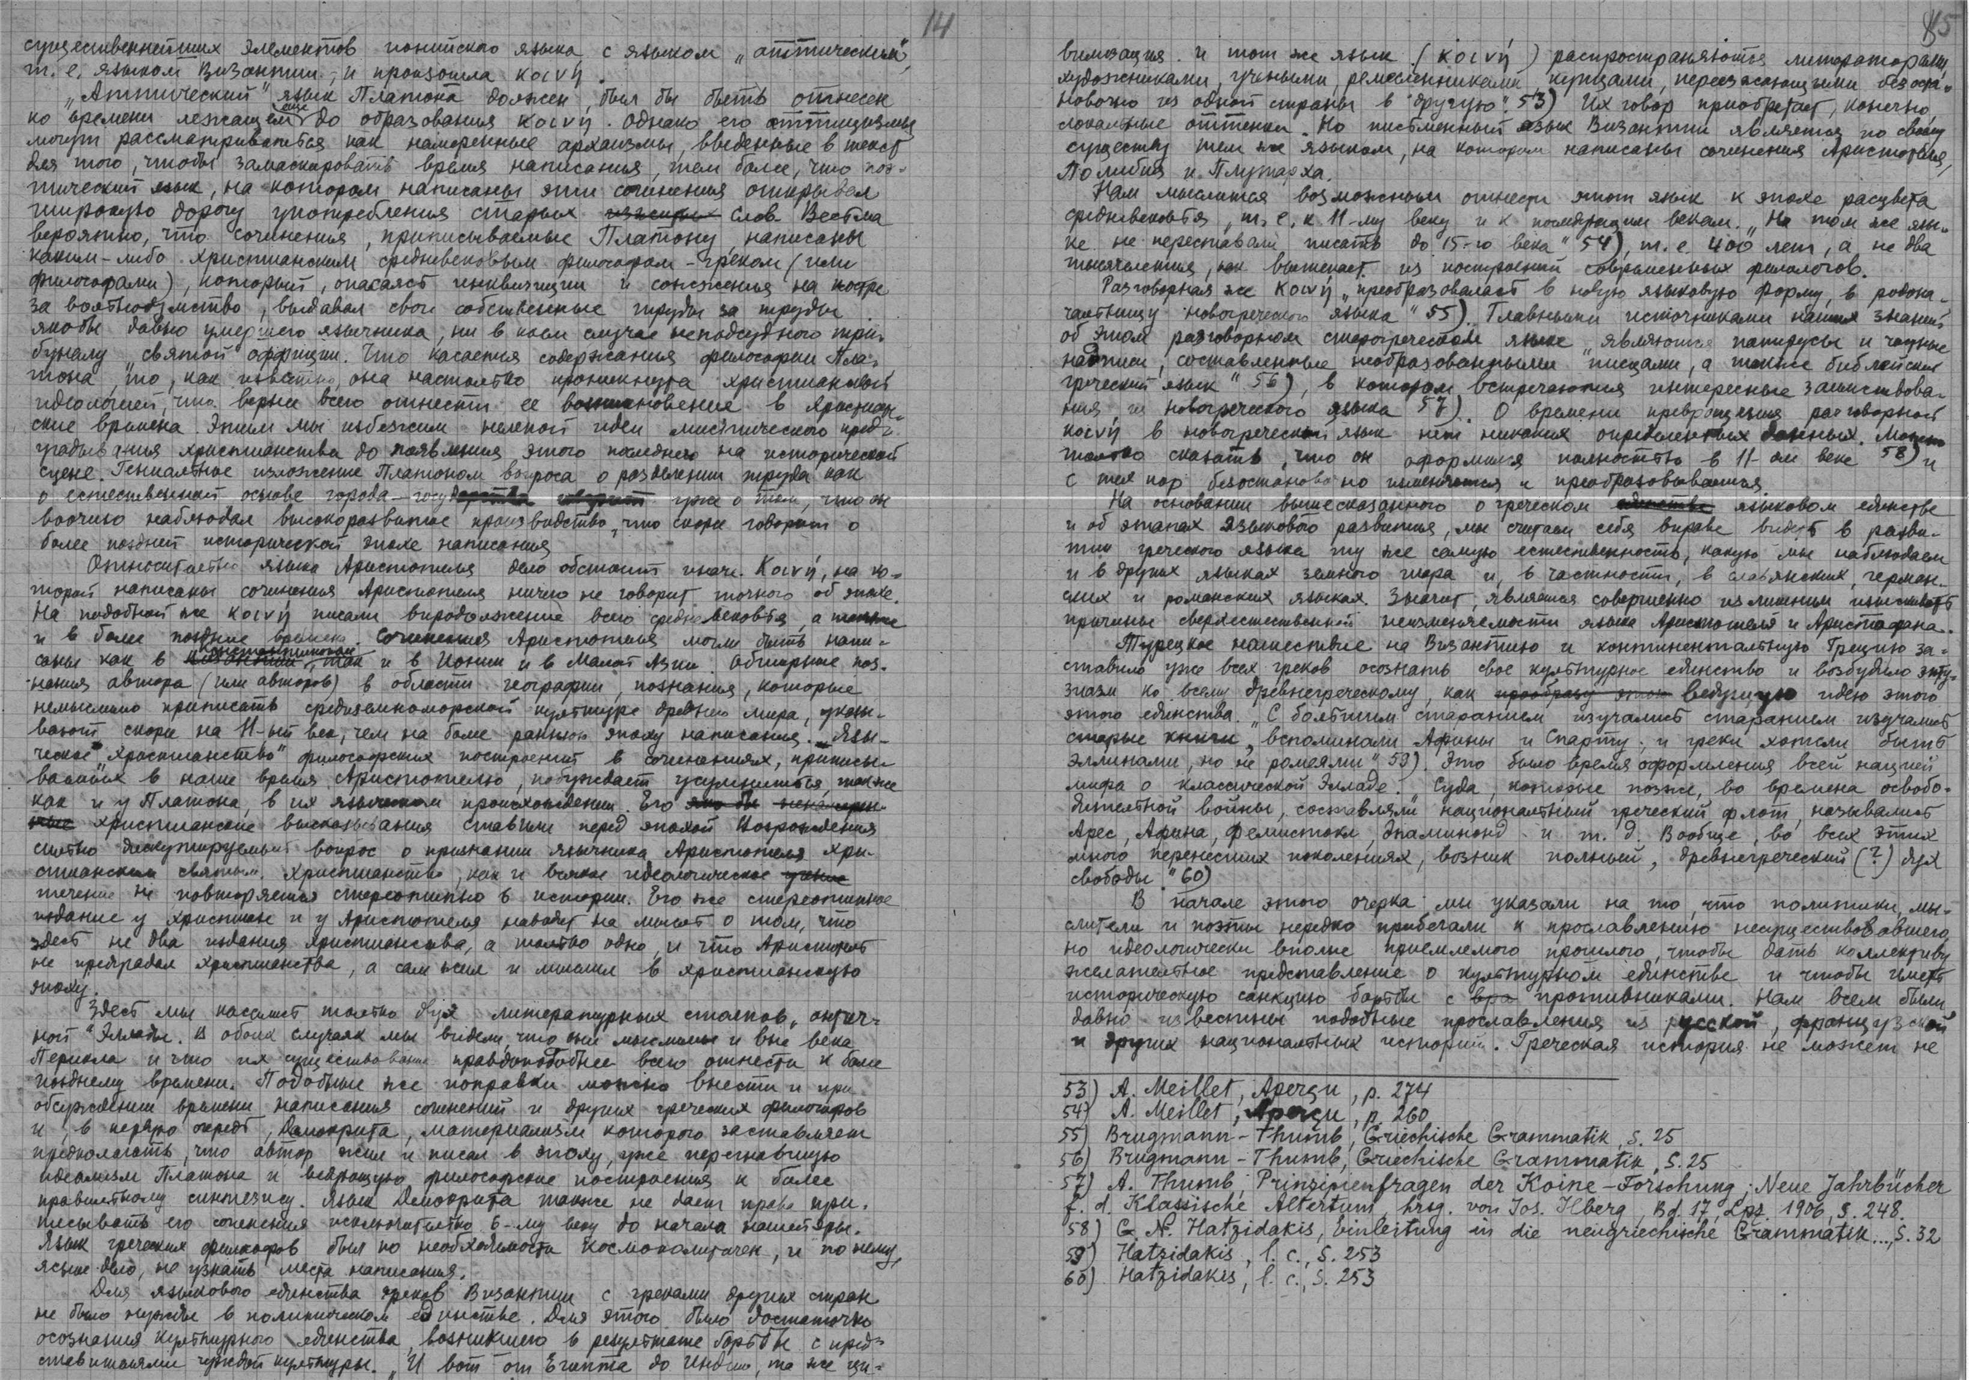 14
существеннейших элементов ионийского языка, с языком „аттическим",
т. е. языком Византии, и произошла κοινή.
„Аттический" язык Платона должен был бы быть отнесен
ко времени лежащему еще до образования κοινή. Однако его аттицизмы
могут рассматриваться как намеренные архаизмы, введенные в текст
для того, чтобы замаскировать время написания, тем более, что поэ-
тический язык, на котором написаны эти сочинения открывал
широкую дорогу употребления старых слов. Весьма
вероятно, что сочинения, приписываемые Платону, написаны
каким-либо христианским средневековым философом-греком (или
философами), который, опасаясь инквизиции и сожжения на костре
за вольнодумство, выдавал свои собственные труды за труды
якобы давно умершего язычника, ни в коем случае неподсудного три-
буналу „святой оффиции. Что касается содержания философии Пла-
тона, то, как известно, она настолько проникнута христианской
идеологией, что вернее всего отнести ее возникновение в христиан-
ские времена. Этим мы избежим нелепой идеи мистического пред-
угадывания христианства до появления этого последнего на исторической
сцене. Гениальное изложение Платоном вопроса о разделении труда как
о естественной основе города-государства говорит уже о том, что он
воочию наблюдал высокоразвитое производство, что скорее говорит о
более поздней исторической эпохе написания.
Относительно языка Аристотеля дело обстоит иначе. Κοινή, на ко-
торой написаны сочинения Аристотеля ничего не говорит точного об эпохе.
На подобной же κοινή писали впродолжение всего средневековья, а также
и в более поздние времена. Сочинения Аристотеля могли быть напи-
саны как в Константинополе, так и в Ионии и в Малой Азии. Обширные поз-
нания автора (или авторов) в области географии, познания, которые
немыслимо приписать средиземноморской культуре древнего мира, указы-
вают скорее на 11-ый век, чем на более раннюю эпоху написания. Язы-
ческое „христианство" философских построений в сочинениях, приписы-
ваемых в наше время Аристотелю, побуждает усумниться, также
как и у Платона, в их языческом происхождении. Его
христианские высказывания ставили перед эпохой Возрождения
сильно дискутируемый вопрос о признании язычника Аристотеля хри-
стианским святым. Христианство, как и всякое идеологическое
течение не повторяется стереотипно в истории. Его же стереотипное
издание у христиан и у Аристотеля наводит на мысль о том, что
здесь не два издания христианства, а только одно, и что Аристотель
не предугадал христианства, а сам жил и мыслил в христианскую
эпоху.
Здесь мы касались только двух литературных столпов „антич-
ной" Эллады. В обоих случаях мы видели, что они мыслимы и вне века
Перикла и что их существование правдоподобнее всего отнести к более
позднему времени. Подобные же поправки можно внести и при
обсуждении времени написания сочинений и других греческих философов
и, в первую очередь, Демокрита, материализм которого заставляет
предполагать, что автор жил и писал в эпоху, уже перегнавшую
идеализм Платона и ведущую философские построения к более
правильному синтезису. Язык Демокрита также не дает права при-
писывать его сочинения исключительно 5-му веку до начала нашей эры.
Язык греческих философов был по необходимости космополитичен, и по нему,
ясное дело, не узнать места написания.
Для языкового единства греков Византии с греками других стран
не было нужды в политическом единстве. Для этого было достаточно
осознания культурного единства, возникшего в результате борьбы с пред-
ставителями чуждой культуры. „И вот от Египта до Индии, та же ци-
15
вилизация и тот же язык (κοινή) распространяются литераторами,
художниками, учеными, ремесленниками, купцами, переезжающими безоста-
новочно из одной страны в другую" 53) Их говор приобретает, конечно,
локальные оттенки. Но письменный язык Византии является по своему
существу тем же языком, на котором написаны сочинения Аристотеля,
Полибия и Плутарха.
Нам мыслится возможным отнести этот язык к эпохе расцвета
средневековья, т. е. к 11-му веку и к последующим векам. „На том же язы-
ке не переставали писать до 15-го века" 54), т. е. 400 лет, а не два
тысячелетия, как вытекает из построений современных филологов.
Разговорная же κοινή „преобразовалась в новую языковую форму, в родона-
чальницу новогреческого языка" 55). Главными источниками наших знаний
об этом разговорном старогреческом языке „являются папирусы и частные
надписи, составленные необразованными писцами, а также библейский
греческий язык" 56), в котором встречаются интересные заимствова-
ния, из новогреческого языка 57). О времени превращения разговорной
κοινή в новогреческий язык нет никаких определенных данных. Можно
только сказать, что он оформился полностью в 11-ом веке 58) и
с тех пор безостановочно изменяется и преобразовывается.
На основании вышесказанного о греческом языковом единстве
и об этапах языкового развития, мы считаем себя вправе видеть в разви-
тии греческого языка ту же самую естественность, какую мы наблюдаем
и в других языках земного шара и, в частности, в славянских, герман-
ских и романских языках. Значит, является совершенно излишним изыскивать
причины сверхестественной неизменяемости языка Аристотеля и Аристофана.
Турецкое нашествие на Византию и континентальную Грецию за-
ставило уже всех греков осознать свое культурное единство и возбудило энту-
зиазм ко всему древнегреческому, как ведущую идею этого
этого единства. „С большим старанием изучались старанием изучались
старые книги, вспоминали Афины и Спарту, и греки хотели быть
эллинами, но не ромеями" 59). Это было время оформления всей нацией
мифа о классической Элладе. „Суда, которые позже, во времена освобо-
дительной войны, составляли национальный греческий флот, назывались
Арес, Афина, Фемистокл, Эпаминонд и т. д. Вообще, во всех этих
много перенесших поколениях, возник полный, древнегреческий (?) дух
свободы." 60)
В начале этого очерка мы указали на то, что политики, мы-
слители и поэты нередко прибегали к прославлению несуществовавшего,
но идеологически вполне приемлемого прошлого, чтобы дать коллективу
желательное представление о культурном единстве и чтобы иметь
историческую санкцию борьбы с противниками. Нам всем были
давно известны подобные прославления из русской, французской
и других национальных историй. Греческая история не может не
53) A. Meillet, Aperçu, p. 274
54) A. Meillet, Aperçu, p. 260
55) Brugmann-Thumb, Griechische Grammatik, S. 25
56) Brugmann-Thumb, Griechische Grammatik, S. 25
57) A. Thumb, Prinzipienfragen der Koine-Forschung; Neue Jahrbücher
f. d. Klassische Altertum, hrsg. von Jos. Ilberg, Bd. 17, Lpz. 1906, S. 248.
58) G. N. Hatzidakis, Einleitung in die neugriechische Grammatik..., S. 32
59) Hatzidakis, l. c., S. 253
60) Hatzidakis, l. c., S. 253